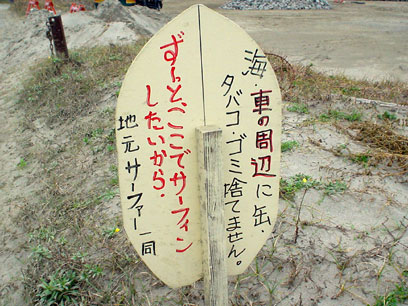 海・車の周辺に缶・
タバコ・ゴミ捨てません。
ずーっと、ここでサーフィン
したいから・
地元サーファー一同